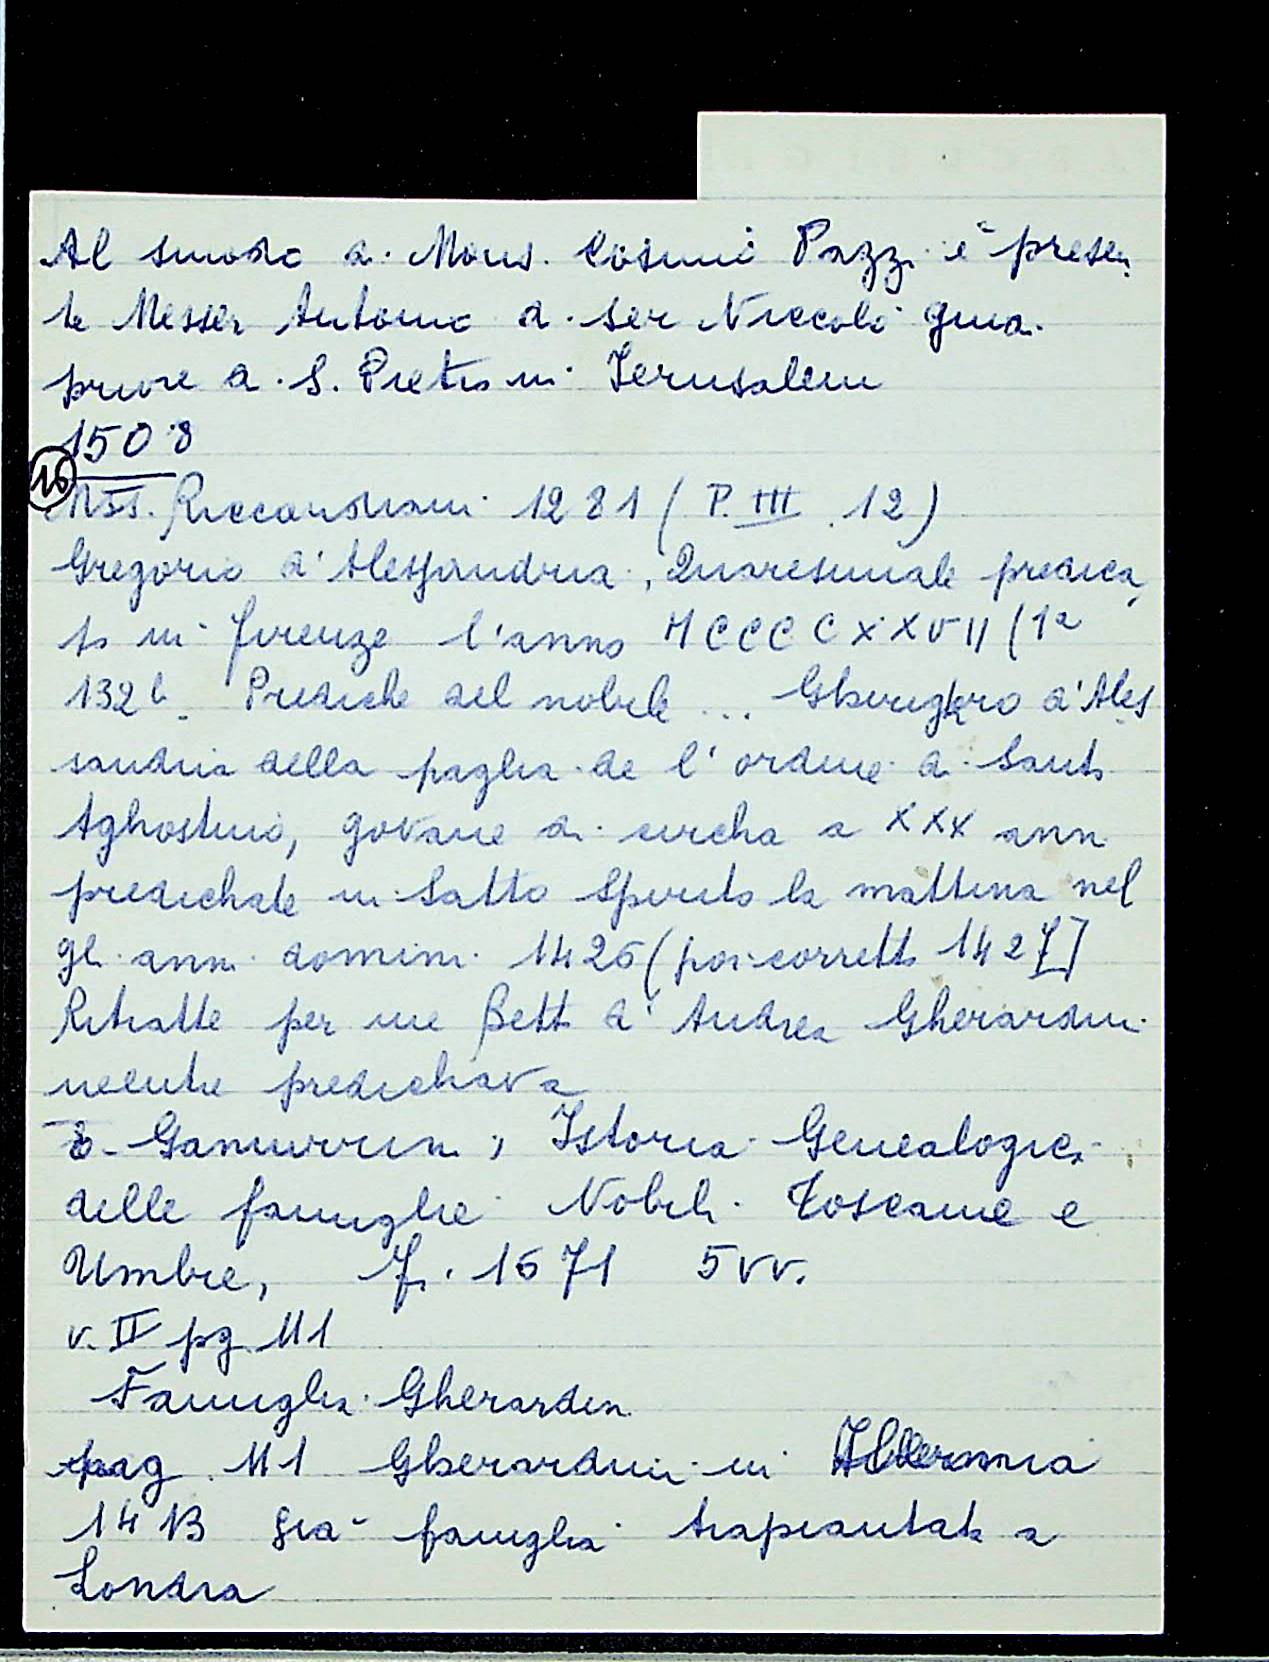 Al sinodo di Mons. Cosimo Pazzi è presen
te Messer Antonio di ser Niccolò
priore di S. Pietro in Jerusalem
1508
16
Mss. Riccardiani 1281 (P. III 12)
Gregorio d'Alessandria, Quaresimale predica
to in Firenze l'anno MCCCCXXVII (1a
132b. Prediche del nobile ... Gherighoro d'Ales
sandria della paglia de l'ordine di Santo
Aghostino, govane di circha a XXX anni
predichate in Satto Spirito la mattina nel
gli anni domini 1426 (poi corretto 1427]
Ritratte per me Betto d'Andrea Gherardini
mentre predichava
E. Gamurrini, Istoria Genealogica
delle famiglie Nobili Toscane e
Umbre, Fi. 1671 5 vv.
v. II pg 111
Famiglia Gherardini
pag 111 Gherardini in
1413 già famiglia trapiantata a
Londra